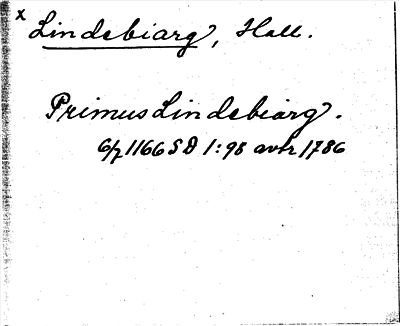 x Lindebiärg, Hall.
Primus Lindebiärg.
6/7 1166 SD 1:98 avtr 1786